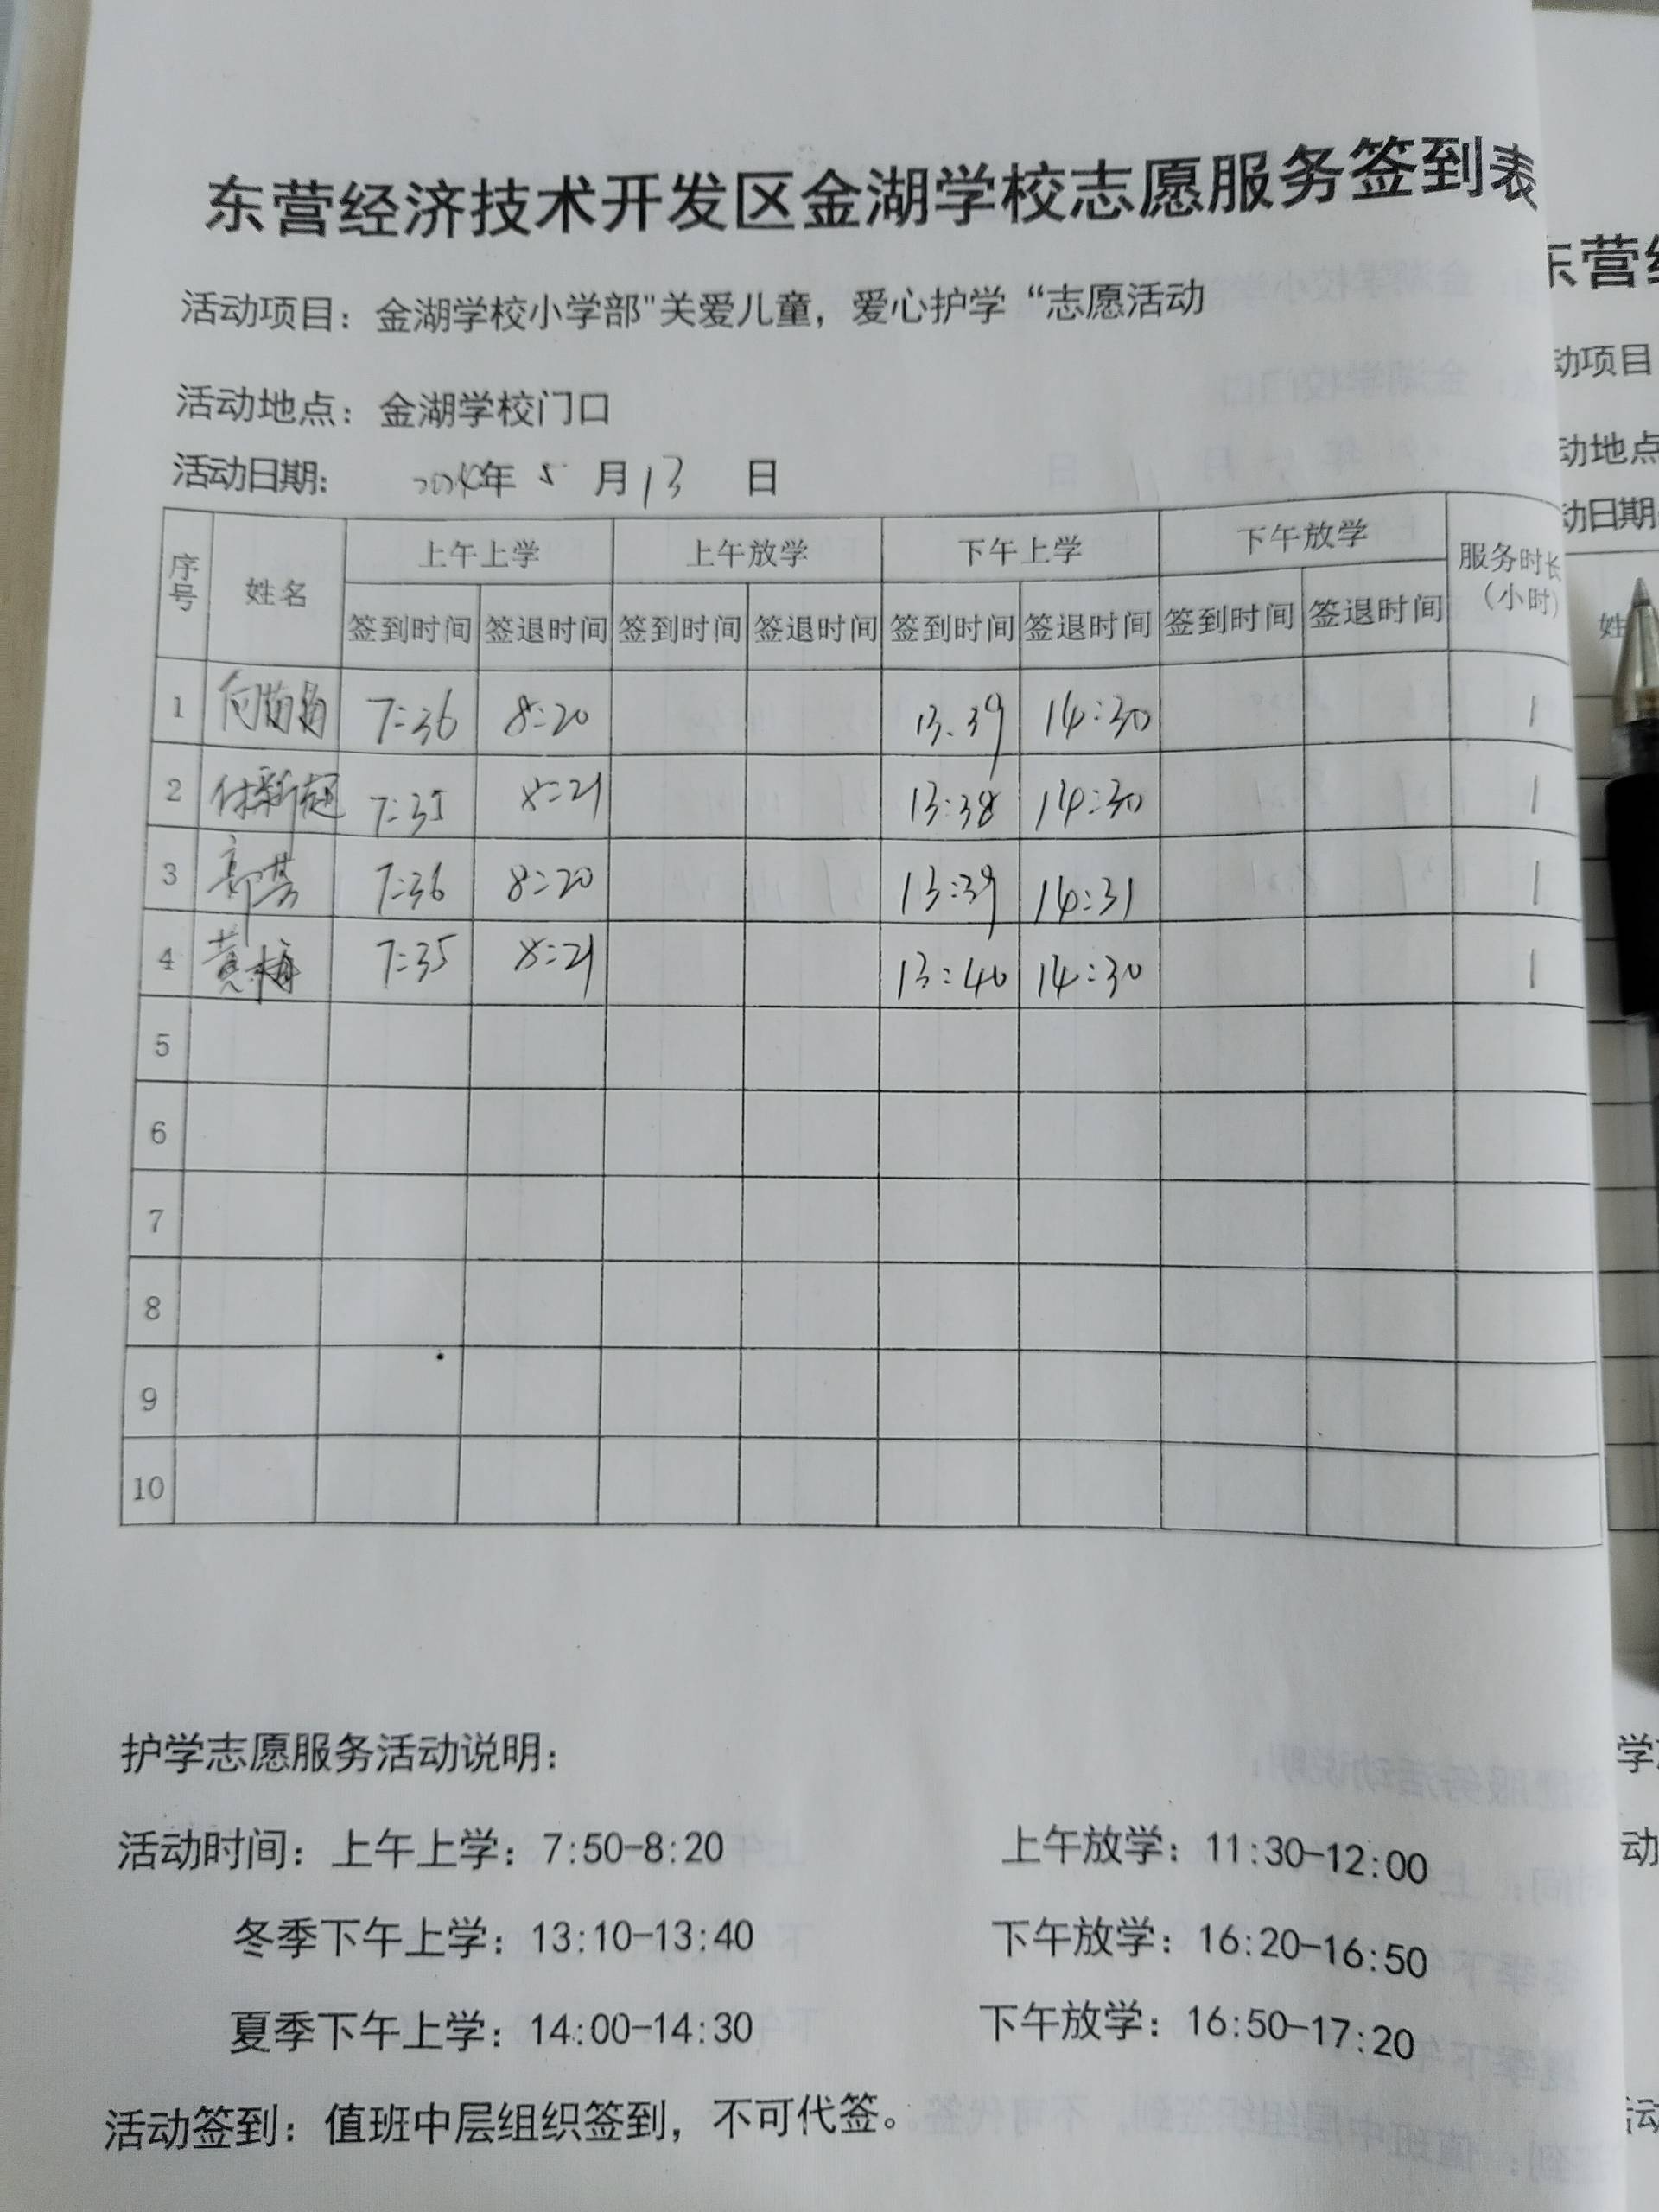 东营经济技术开发区金湖学校志愿服务签到表
活动项目：金湖学校小学部"关爱儿童，爱心护学“志愿活动
活动地点：金湖学校门口
活动日期： 年 5 月 13 日
序号 姓名 上午上学 上午放学 下午上学 下午放学 服务时长（小时）
签到时间 签退时间 签到时间 签退时间 签到时间 签退时间 签到时间 签退时间
1 7:36 8:20 13.39 14:30 1
2 付新超 7:35 8:21 13:38 14:30 1
3 7:36 8:20 13:39 14:31 1
4 黄梅 7:35 8:21 13:40 14:30 1
5
6
7
8
9
10
护学志愿服务活动说明：
活动时间：上午上学：7:50-8:20 上午放学：11:30-12:00
冬季下午上学：13:10-13:40 下午放学：16:20-16:50
夏季下午上学：14:00-14:30 下午放学：16:50-17:20
活动签到：值班中层组织签到，不可代签。
东营
动项目
动地点
动日期
姓